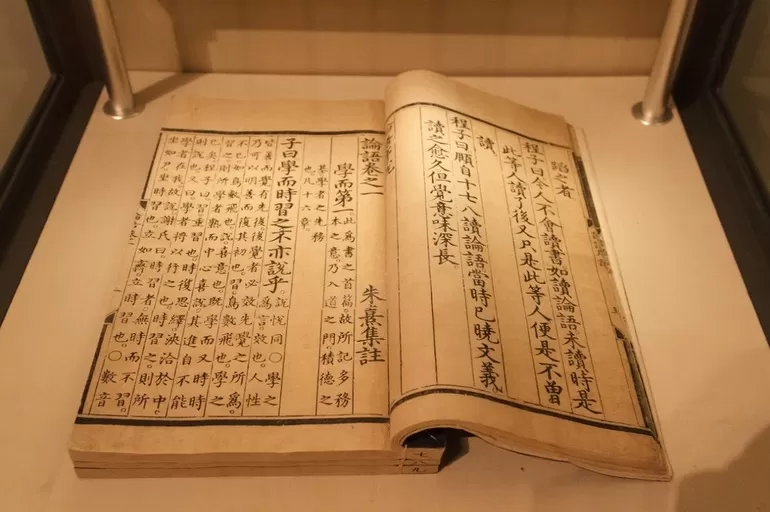 蹈之者
程子曰今人不會讀書如讀論語未讀時是
此等人讀了後又只是此等人便是不曾
讀
程子曰頤自十七八讀論語當時已曉文義
讀之愈久但覺意味深長
論語卷之一 朱熹集註
學而第一
此爲書之首篇。故所記多務
本之意。乃入道之門。積德之
基。學者之先務
也。凡十六章。
子曰學而時習之不亦說乎
說悅同○學之
爲言。效也。人性
皆善。而覺有先後。後覺者。必效先覺之所爲。
乃可以明善而復其初也。習。鳥數飛也。學之
不已。如鳥數飛也。說。喜意也。旣學而又時時
習之。則所學者熟而中心喜說。其進自不能
已矣。程子曰。習。重習也。時復思繹。浹洽於中。
則說也。又曰。學者。將以行之也。時習之。則所
學者在我。故說。謝氏曰。時習者。無時而不習。
坐如尸。坐時習也。立如齊。立時習也。○數音